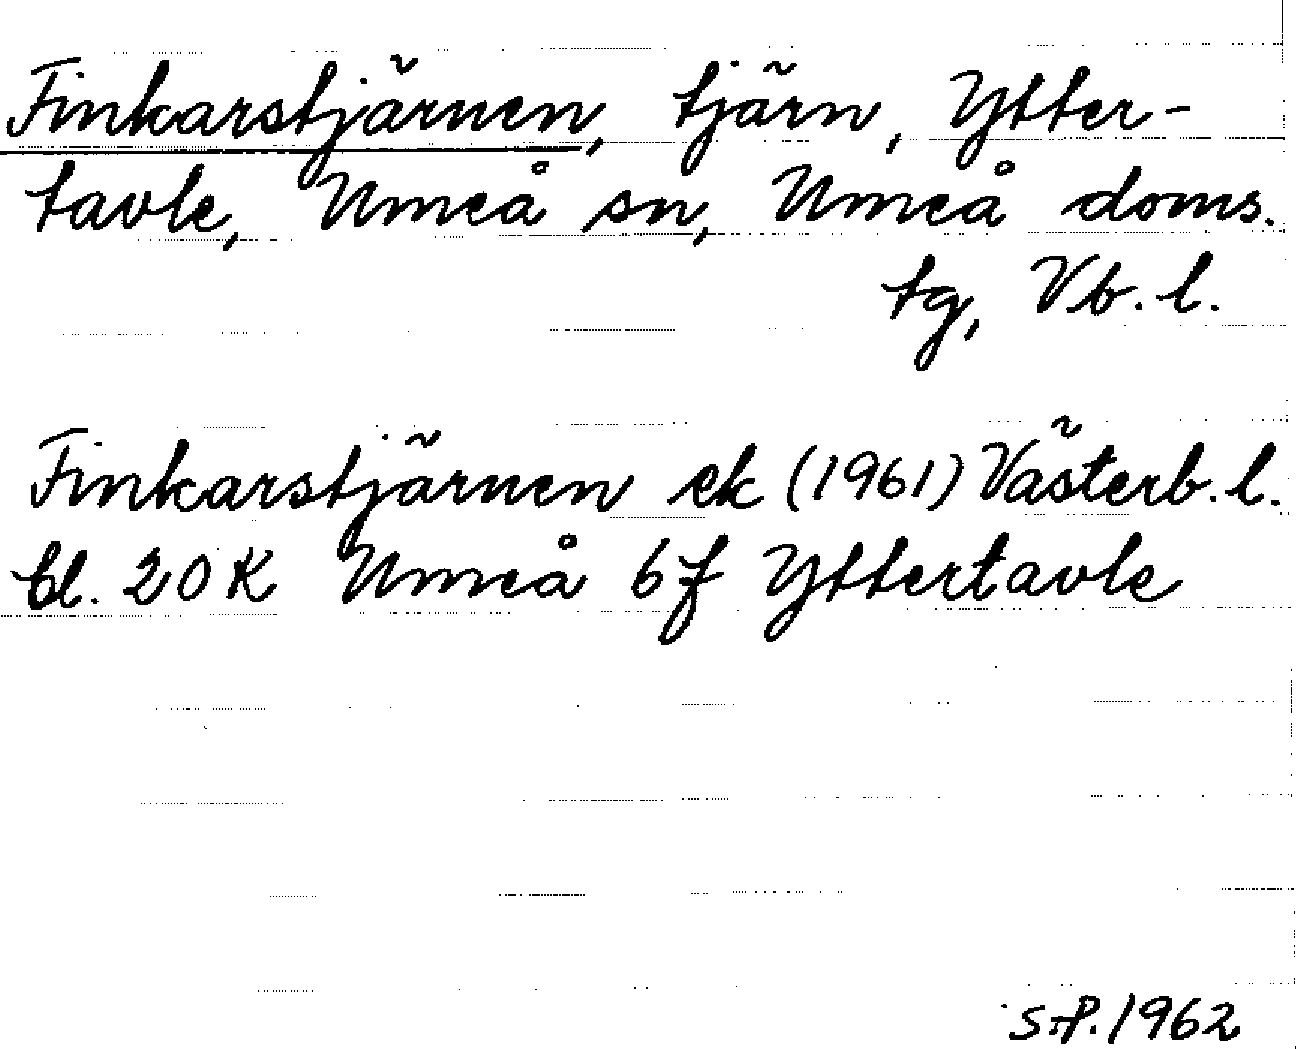 Finkarstjärnen, tjärn, Ytter-
tavle, Umeå sn, Umeå doms.
tg, Vb. l.
Finkarstjärnen ek (1961) Västerb. l.
bl. 20 K Umeå 6f Yttertavle
1962